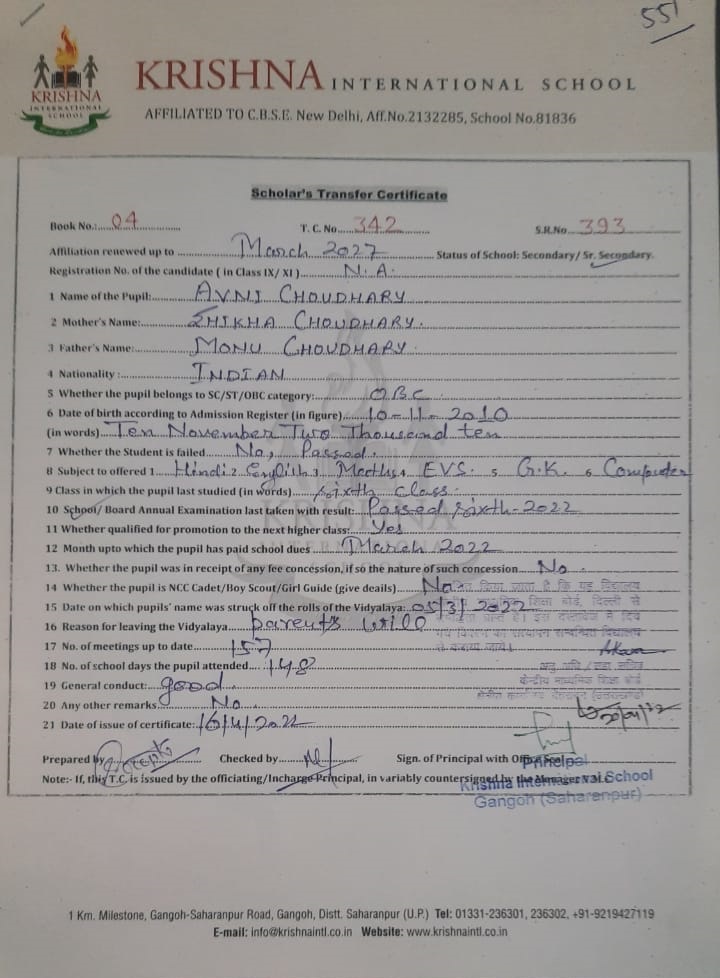 551
KRISHNA
INTERNATIONAL
SCHOOL
KRISHNA INTERNATIONAL SCHOOL
AFFILIATED TO C.B.S.E. New Delhi, Aff.No.2132285, School No.81836
Scholar's Transfer Certificate
Book No.:......04............... T. C. No.....342........... S.R.No...393.........
Affiliation renewed up to ............March 2027............ Status of School: Secondary/ Sr. Secondary.
Registration No. of the candidate ( in Class IX/ XI )............N.A.............
1 Name of the Pupil:............AVNI CHOUDHARY............
2 Mother's Name:............SHIKHA CHOUDHARY.............
3 Father's Name:............MONU CHOUDHARY.............
4 Nationality :............INDIAN............
5 Whether the pupil belongs to SC/ST/OBC category:............OBC............
6 Date of birth according to Admission Register (in figure)......10-11-2010............
(in words)....Ten November Two Thousand ten............
7 Whether the Student is failed......No, Passed.............
8 Subject to offered 1....Hindi 2 English 3 Maths 4 EVS. 5 G.K. 6 Computer
9 Class in which the pupil last studied (in words)......sixth class.............
10 School/ Board Annual Examination last taken with result:...Passed sixth-2022............
11 Whether qualified for promotion to the next higher class:....Yes............
12 Month upto which the pupil has paid school dues ......March 2022............
13. Whether the pupil was in receipt of any fee concession, if so the nature of such concession....No.............
14 Whether the pupil is NCC Cadet/Boy Scout/Girl Guide (give deails)......No............
15 Date on which pupils' name was struck off the rolls of the Vidyalaya: 05/3/2022
16 Reason for leaving the Vidyalaya......parent's will
17 No. of meetings up to date............157............
18 No. of school days the pupil attended....148............
19 General conduct:....good.............
20 Any other remarks............No.............
21 Date of issue of certificate: 16/4/2022
केन्द्रीय माध्यमिक शिक्षा बोर्ड
Prepared by............ Checked by............ Sign. of Principal with
Principal
Note:- If, this T.C. is issued by the officiating/Incharge Principal, in variably countersigned by the Manager
Krishna International School
Gangoh (Saharanpur)
KRISHNA
INTERNATIONAL
SCHOOL
1 Km. Milestone, Gangoh-Saharanpur Road, Gangoh, Distt. Saharanpur (U.P.) Tel: 01331-236301, 236302, +91-9219427119
E-mail: info@krishnaintl.co.in Website: www.krishnaintl.co.in